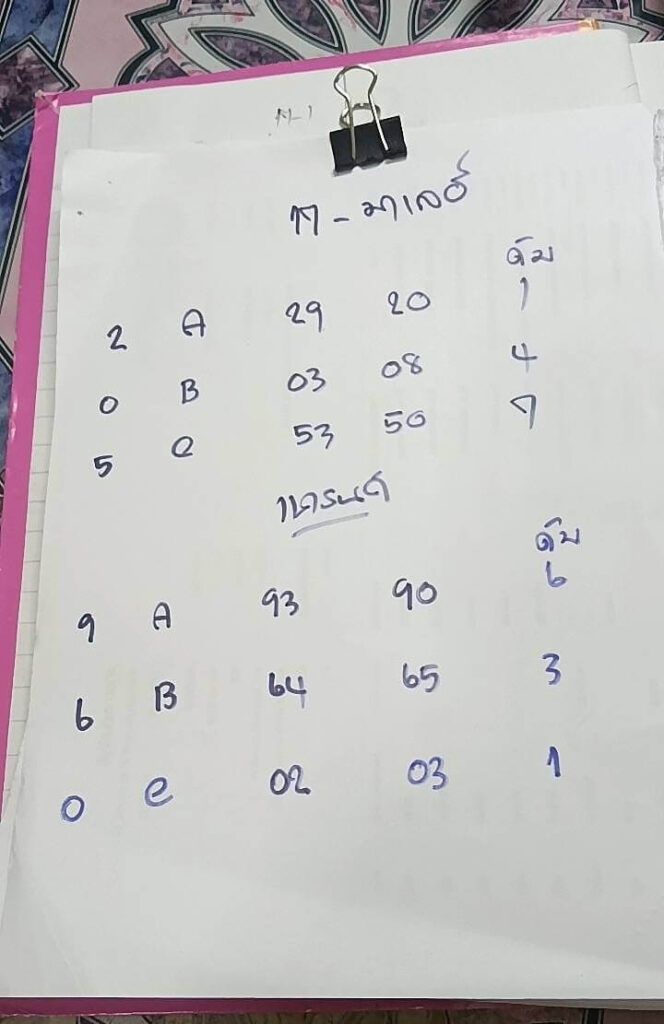 ท - มาเลย์
ดับ
2 A 29 20 1
0 B 03 08 4
5 e 53 50 7
เทรนด์
ดับ
9 A 93 90 6
6 B 64 65 3
0 e 02 03 1